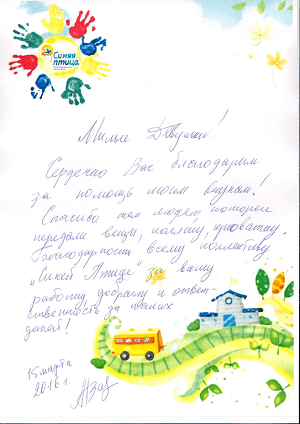 Синяя
птица
Милые Девушки!
Сердечно Вас благодарим
за помощь моим внукам!
Спасибо тем людям которые
передали вещи, коляску, кроватку.
Благодарность всему коллективу
„Синей Птице" за вашу
работу, доброту и ответ-
ственность за наших
детей!
15 марта
2016 г.